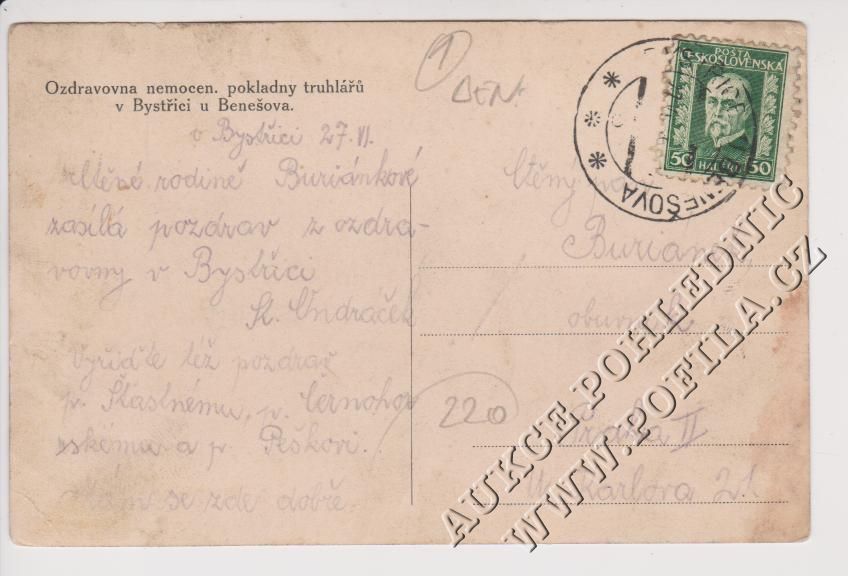 Ozdravovna nemocen. pokladny truhlářů
v Bystřici u Benešova.
v Bystřici 27.VI.
ctěné rodině Buriánkově
zasílá pozdrav z ozdra-
vovny v Bystřici
St. Ondráček
Vyřiďte též pozdrav
p. Šťastnému, p. Černohor
skému a p. Peškovi.
Mám se zde dobře.
1
DEN
POŠTA
ČESKOSLOVENSKÁ
50 HALÉŘŮ 50
BENEŠOVA
Ctěný pan
Buriánek
obuvník
220
Praha II
Karlova 21
AUKCE POHLEDNIC
WWW.POFILA.CZ